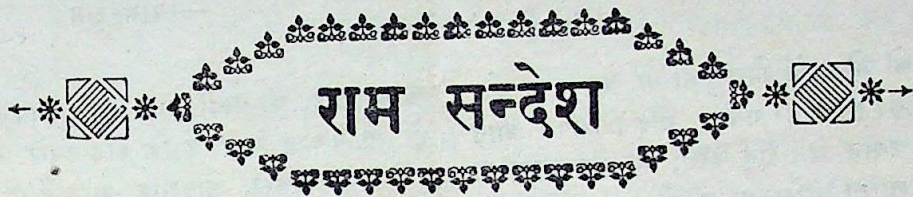 राम सन्देश